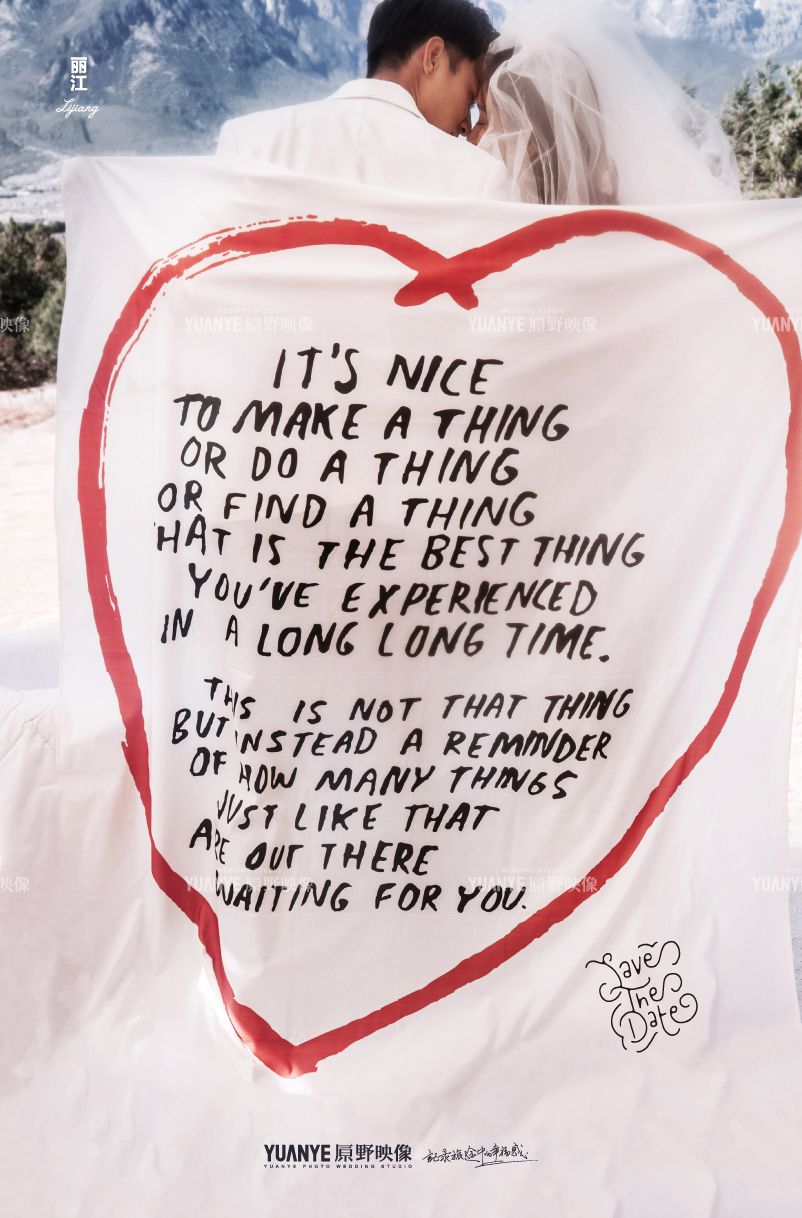 丽江
Lijiang
IT'S NICE
TO MAKE A THING
OR DO A THING
OR FIND A THING
THAT IS THE BEST THING
YOU'VE EXPERIENCED
IN A LONG LONG TIME.
THIS IS NOT THAT THING
BUT INSTEAD A REMINDER
OF HOW MANY THINGS
JUST LIKE THAT
ARE OUT THERE
WAITING FOR YOU.
Save
The
Date
YUANYE 原野映像 记录旅途中的幸福感
YUANYE PHOTO WEDDING STUDIO
WEDDING STUDIO
YUANYE 原野映像